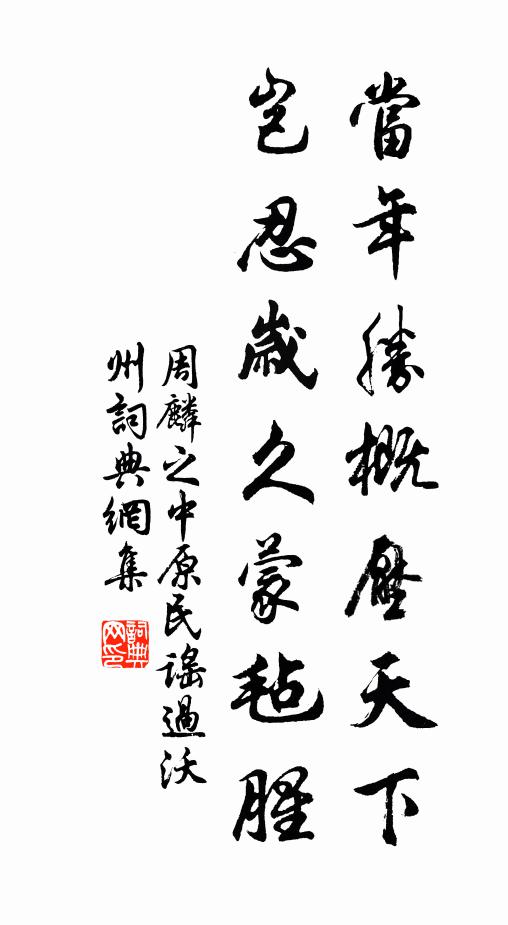 當年勝概壓天下
豈忍歲久蒙毡腥
周麟之中原民謠過沃
州詞典網集
詞典
网印